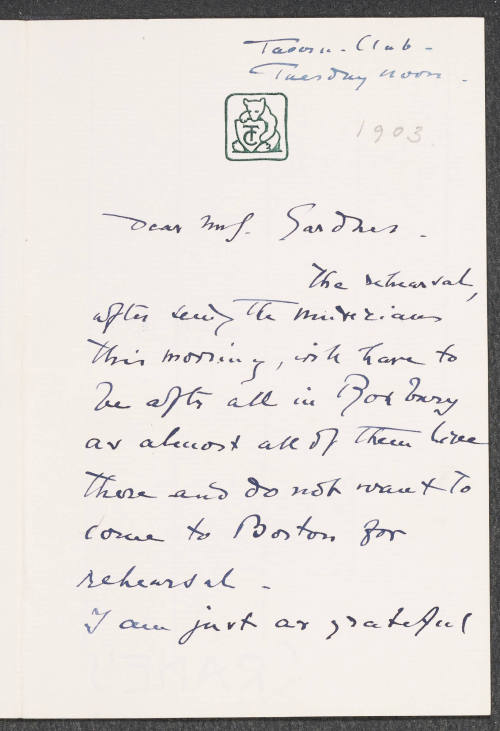 Tavern - Club -
Tuesday noon -
TC
1903.
Dear Mrs. Gardner -
The rehearsal,
after seeing the musicians
this morning, will have to
be after all in Roxbury
as almost all of them live
there and do not want to
come to Boston for
rehearsal -
I am just as grateful